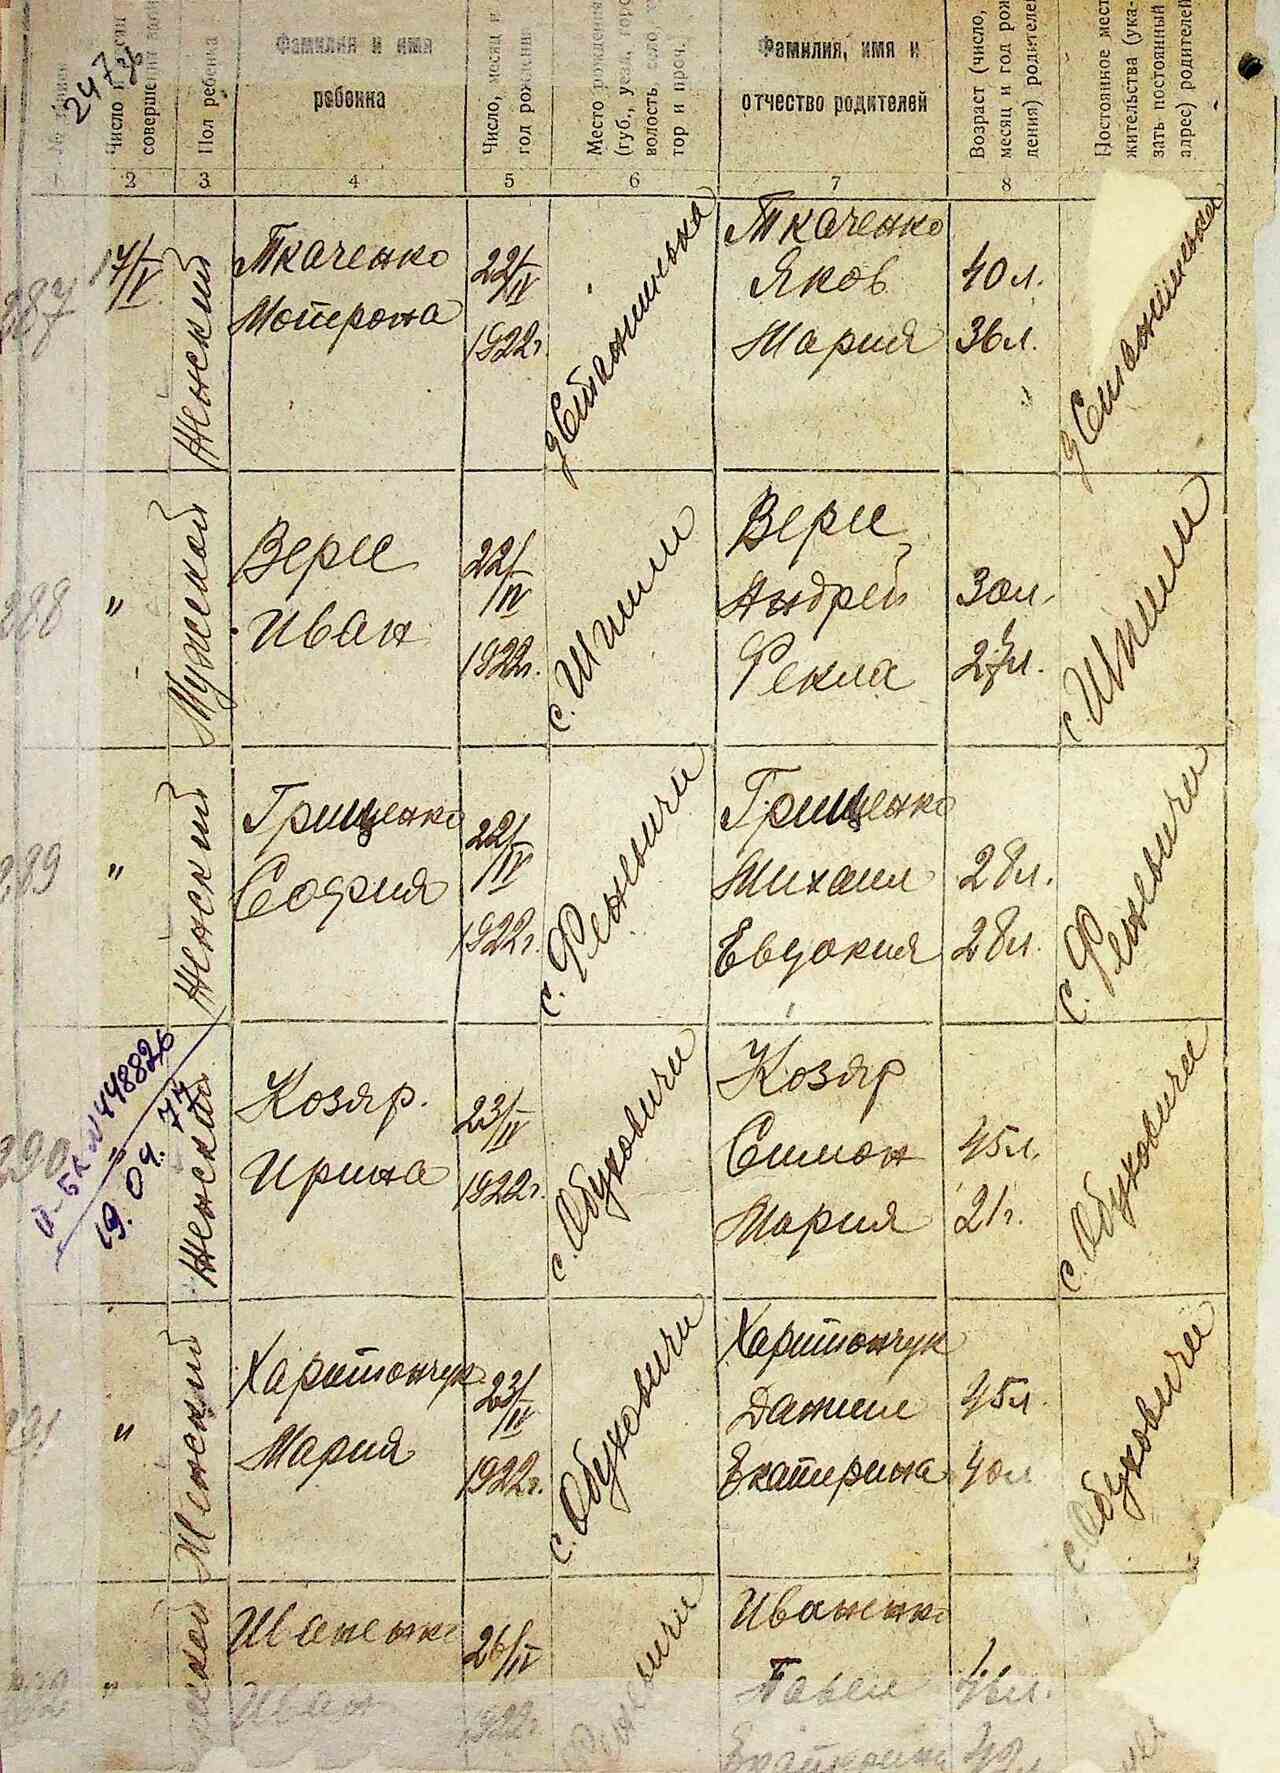 247
Число и
совершения
Пол ребенка
Фамилия и имя
ребенка
Число, месяц и
год рождения
Место рождения
(губ., уезд, гор.
волость, село, ху-
тор и проч.
Фамилия, имя и
отчество родителей
Возраст (число,
месяц и год рож-
дения) родителей
Постоянное мест
жительства (ука-
зать постоянный
адрес) родителей
2 3 4 5 6 7 8
287
17/IV
Женский
Ткаченко
Мотрона
22/IV
1922г.
Ткаченко
Яков
Мария
40 л.
36 л.
288
"
Мужской
Верес
Иван
22/IV
1922г.
с. Шпили
Верес
Андрей
Фекла
30 л.
27 л.
с. Шпили
289
"
Женский
Грищенко
София
22/IV
1922г.
с. Феневичи
Грищенко
Михаил
Евдокия
28 л.
28 л.
с. Феневичи
290
"
№448826
19.04.77
Женский
Козяр.
Ирина
23/IV
1922г.
с. Обуховичи
Козяр
Симон
Мария
45 л.
21 г.
с. Обуховичи
291
"
Женский
Харитончук
Мария
23/IV
1922г.
с. Обуховичи
Харитончук
Даниил
Екатерина
45 л
40 л
с. Обуховичи
"
Иваненко
Иван
26/IV
1922г.
Иваненко
Павел
46 л.